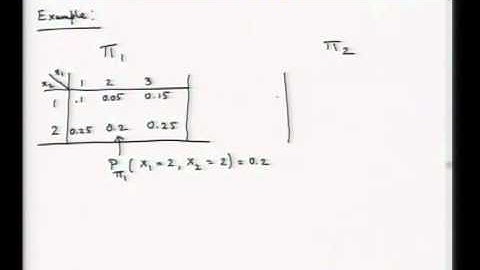 Example:
π₁ π₂
x₂ x₁ 1 2 3
1 .1 0.05 0.15
2 0.25 0.2 0.25
P_π₁ ( x₁ = 2, x₂ = 2) = 0.2